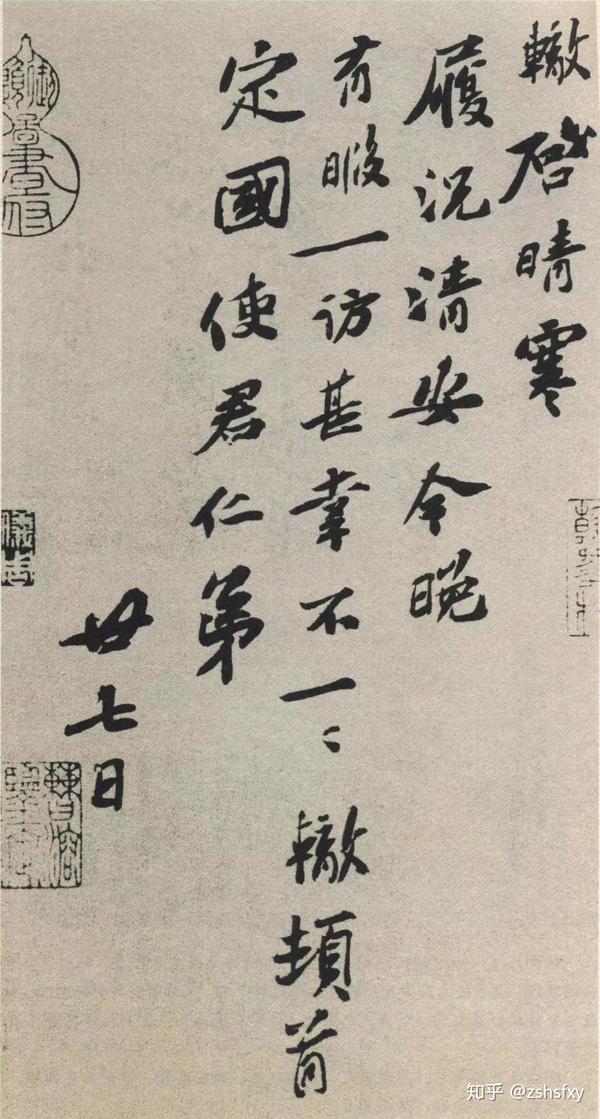 轍啓晴寒
履況清安今晚
有暇一訪甚幸不一〻轍頓首
定國使君仁弟
廿七日
御府圖書
知乎 @zshsfxy